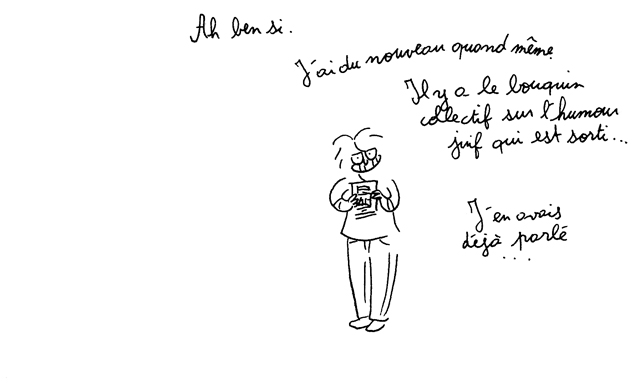 Ah ben si.
J'ai du nouveau quand même
Il y a le bouquin
collectif sur l'humour
juif qui est sorti...
J'en avais
déjà parlé
...